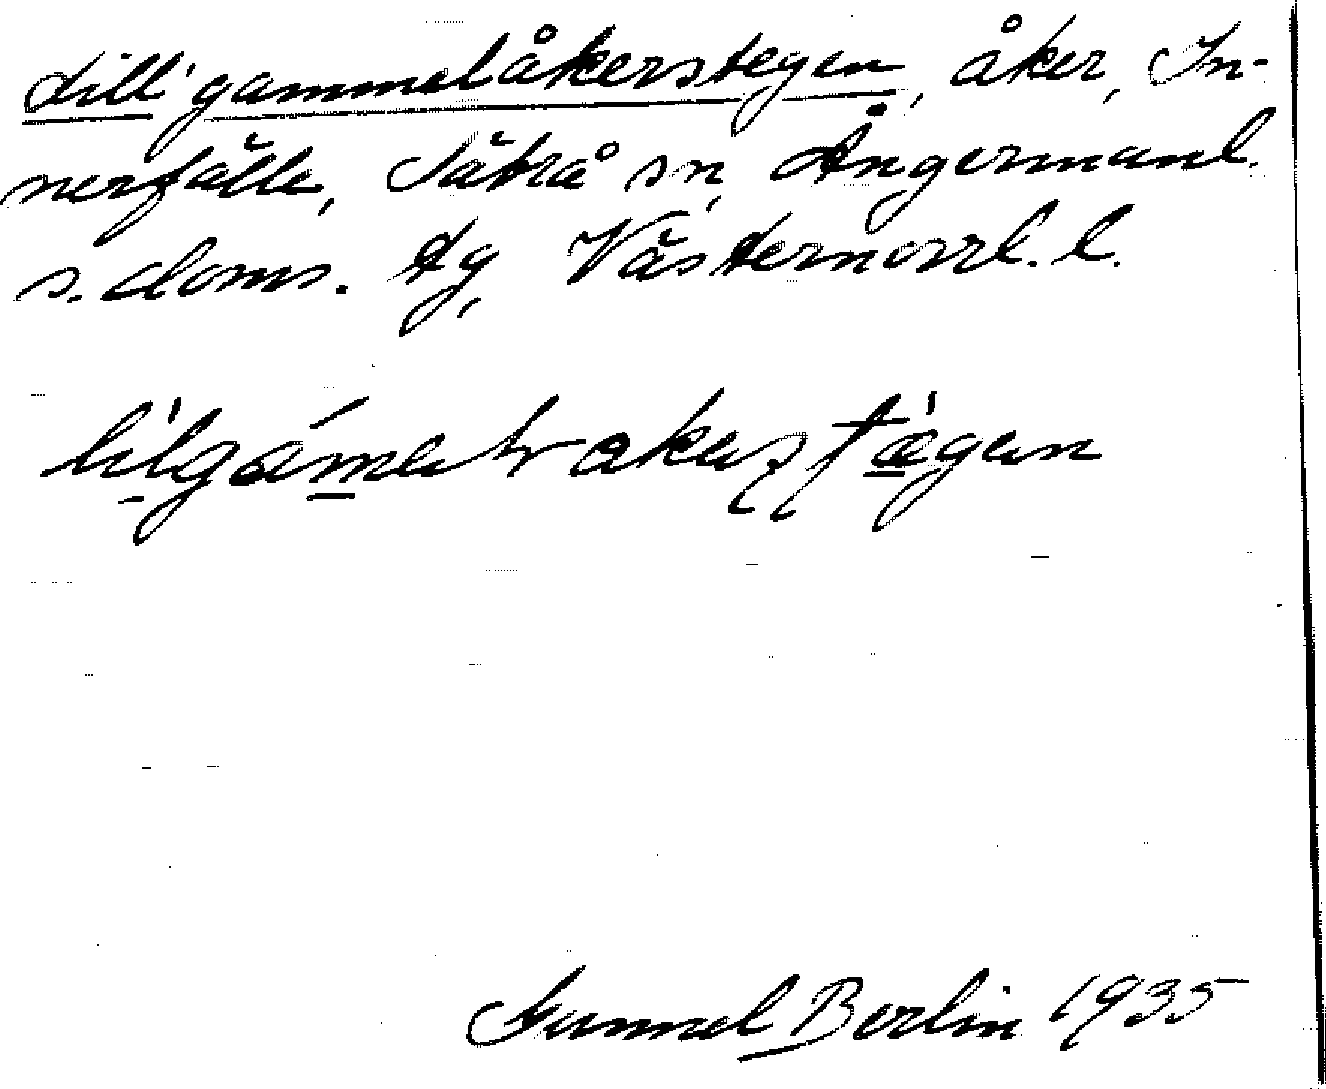 Lill'gammelåkerstegen, åker, In-
nerfälle, Säbrå sn, Ångermanl.
s. doms. tg, Västernorrl. l.
Gunnel Berlin 1935